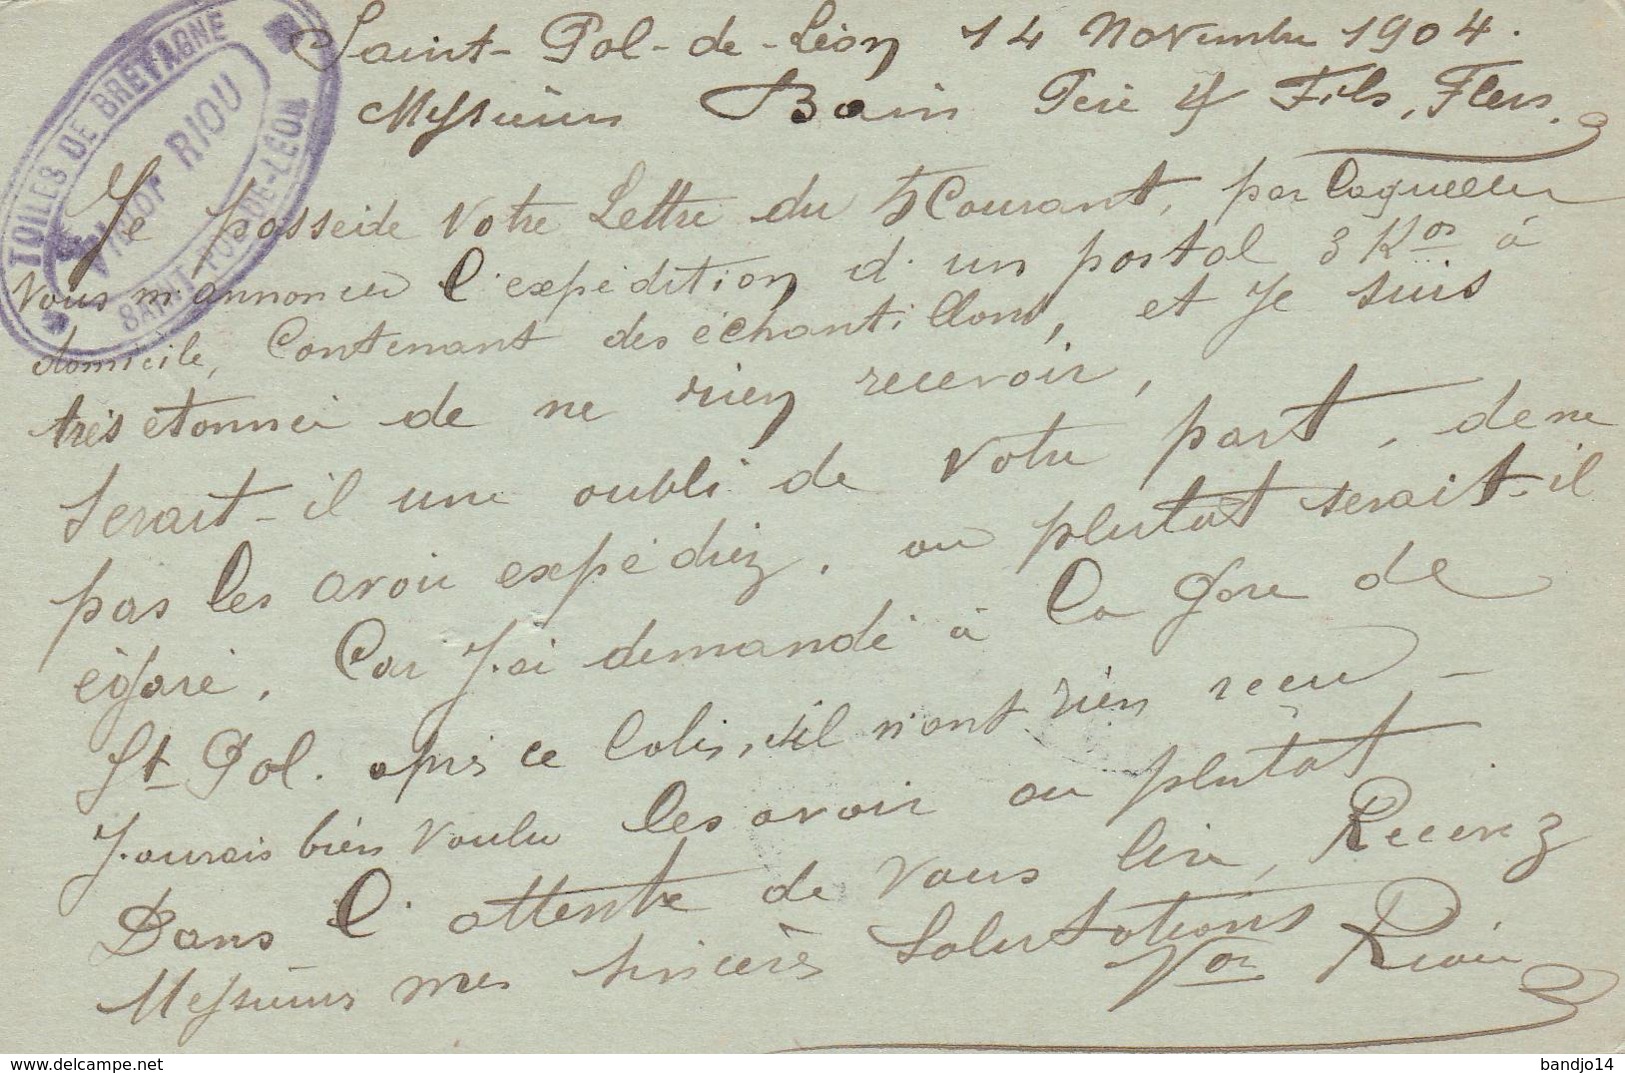 TOILES DE BRETAGNE
VICTOR RIOU
SAINT-POL-DE-LÉON
Saint-Pol-de-Léon 14 Novembre 1904.
Messieurs Bain Père & Fils, Flers.
Je possède votre Lettre du 5 Courant, par laquelle
vous m'annoncer l'expédition d'un postal 3 Kos à
domicile, Contenant des échantillons, et Je suis
très étonnér de ne rien recevoir,
Serait-il une oubli de votre part, de ne
pas les avoir expédiez, ou plutot serait-il
égaré, Car J'ai demandé à la gare de
St Pol. après ce Colis, s'il n'ont rien recu -
J'aurais bien voulu les avoir au plutôt
Dans l'attente de vous lire, Recevez
Messieurs mes sincères Salutations
Vor Riou
bandjo14